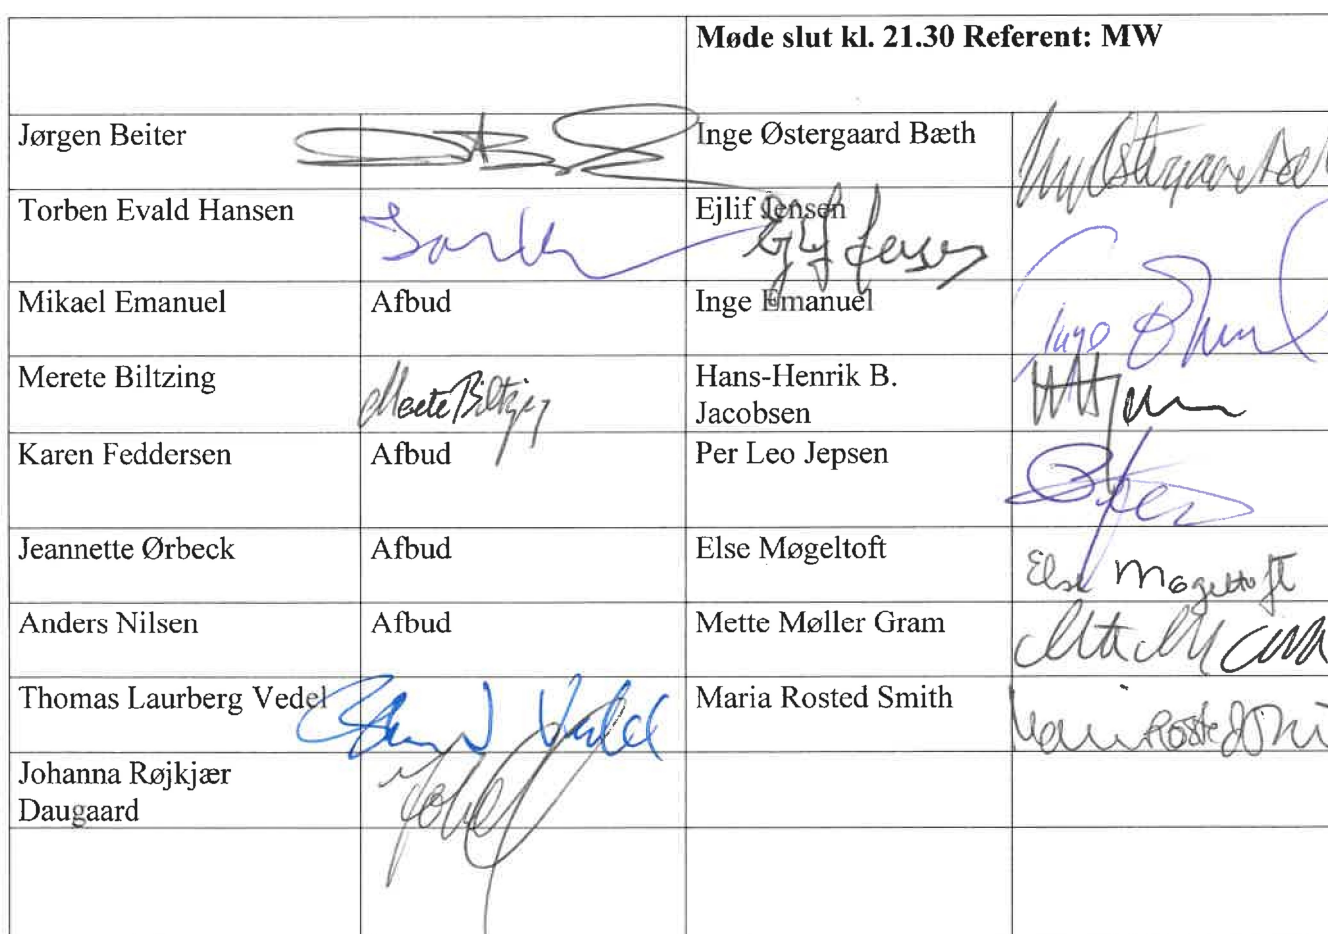 Møde slut kl. 21.30 Referent: MW
Jørgen Beiter
Inge Østergaard Bæth
Torben Evald Hansen
Ejlif Jensen
Ejlif Jensen
Mikael Emanuel
Afbud
Inge Emanuel
Inge
Merete Biltzing
Merete Biltzing
Hans-Henrik B.
Jacobsen
Karen Feddersen
Afbud
Per Leo Jepsen
Jeannette Ørbeck
Afbud
Else Møgeltoft
Else Møgeltoft
Anders Nilsen
Afbud
Mette Møller Gram
Thomas Laurberg Vedel
Maria Rosted Smith
Johanna Røjkjær
Daugaard